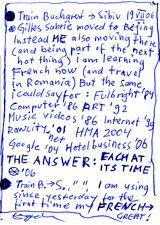 Train Bucharest → Sibiu 19 VII 06
Gilles Sabrie moved to Beijing
Instead ME also moving there
(and being part of the next
hot thing) I am learning
French now (and travel
in Romania) But the same
I could say for: Fulbright '84
Computer '86 ART '92
Music videos '86 Internet '96
Rawcity '01 HMA 2004
Google '04 Hotel business '06
THE ANSWER: EACH AT
ITS TIME
'06
Train B. → S., " ", I am using
since yesterday for the
first time my FRENCH →
GREAT!